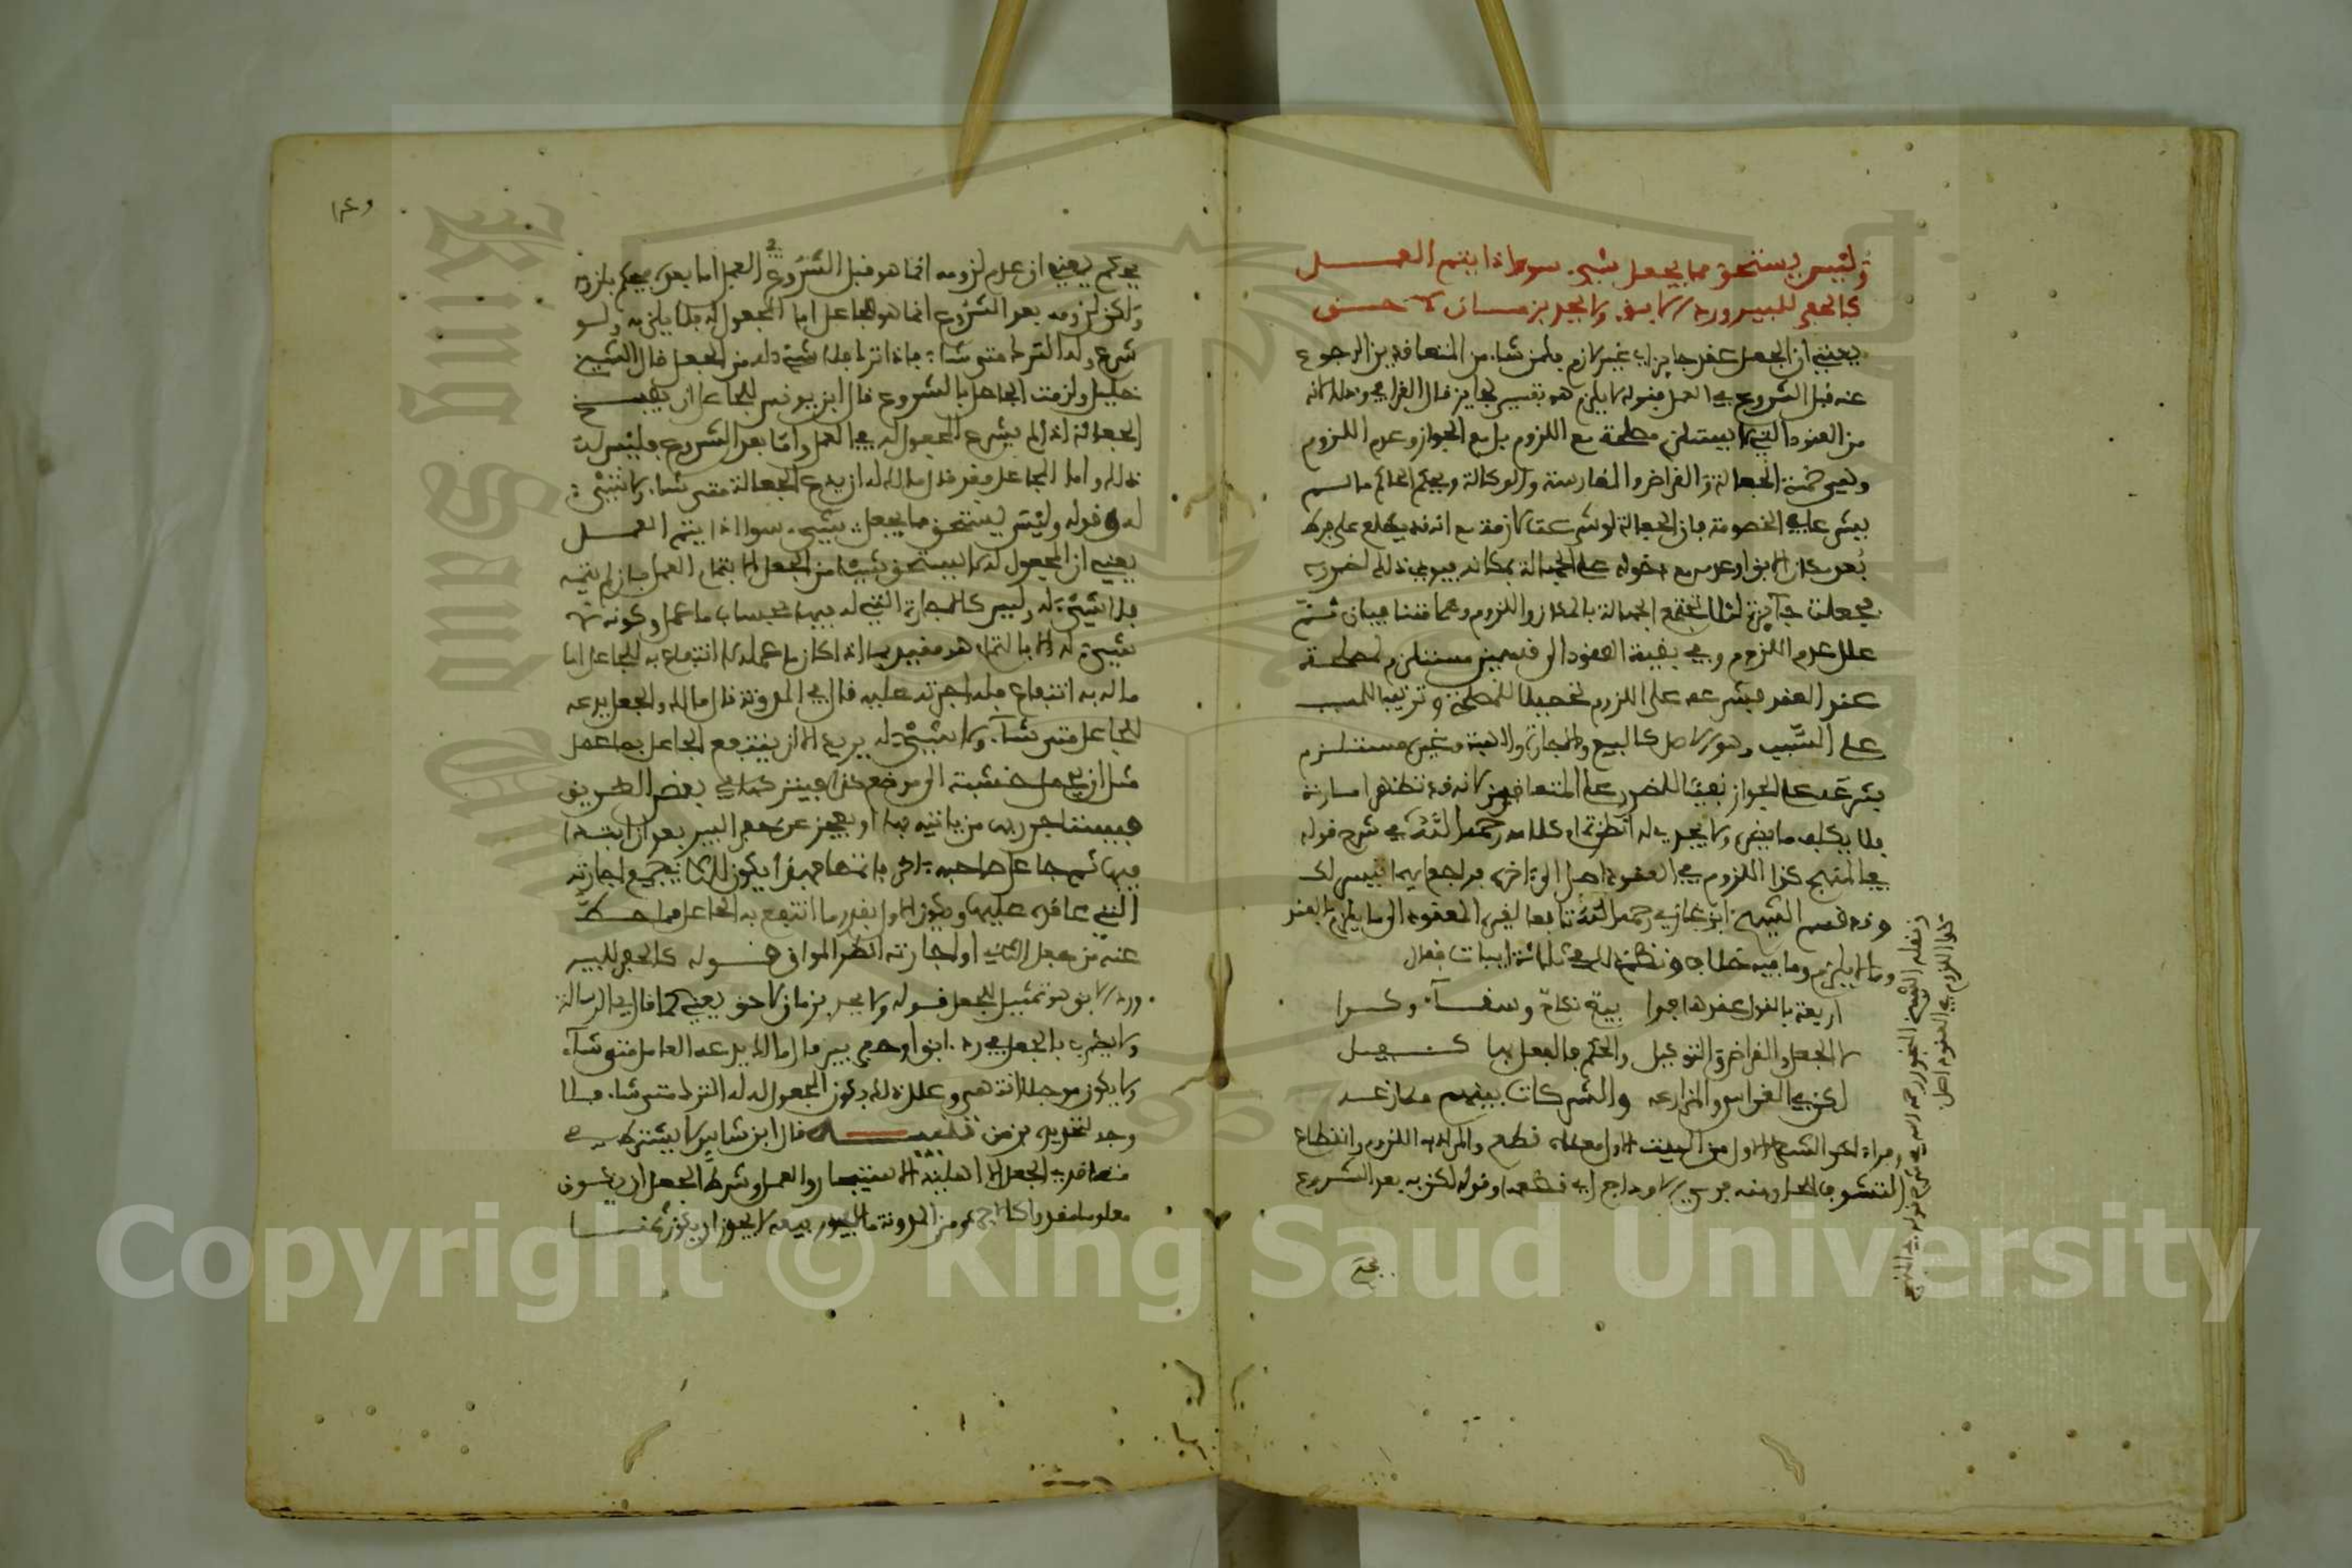 وليس يستحق مما يجعل شيء سوى اذا يتم العمل
كالحفر للبير ورد الابق ولا يحد بزمان لاحق
يعني ان الجعل عقد جايز اي غير لازم فلمن شاء من المتعاقدين الرجوع
عنه قبل الشروع في العمل فقوله لا يلزم هو تفسير لجايز قال القرافي وذلك لانه
من العقود التي لا يستلزم مصلحة مع اللزوم بل مع الجواز وعدم اللزوم
وهي خمسة الجعالة والقراض والمغارسة والوكالة وتحكيم الحاكم ما لم
يشرعا في الخصومة فان الجعالة لو شرعت لازمة مع انه قد يطلع على فرط
بعد مكان الابق او عدمه مع دخوله على الجهالة بمكانه فيودي ذلك لضرره
فجعلت جايزة لئلا تجتمع الجهالة بالمكان واللزوم وهما متنافيان ثم
علل عدم اللزوم في بقية العقود الى قسمين مستلزم لمصلحة
عند العقد فشرعه على اللزوم تحصيلا للمصلحة وترتيبا للمسبب
على السبب وهو الاصل كالبيع والاجارة والهبة وغير مستلزم
يشرع على الجواز نفيا للضرر على المتعاقدين لانه قد تظهر امارته
فلا يكلف ما يضر ولا يجدي له انظر تمام كلامه رحمه الله في شرح قوله
في المنهج كذا اللزوم في العقود اصل الى اخره فراجعه
وقد قسم الشيخ ابن غازي رحمه الله تابعا لغيره العقود الى ما يلزم بالعقد
وما لا يلزم وما فيه خلاف ونظم ذلك في ثلاثة ابيات فقال
اربعة بالقول عقدها جرا بيع نكاح وسقاء وكرا
لا الجعل والقراض والتوكيل والحكم فالفعل بها كفيل
لكن في الغراس والمزارعه والشركات بينهم منازعه
ومراده
وقوله لكن به بعد الشروع
يحـ
نقله الشيخ المنجور رحمه الله في شرح قوله في المنهج
كذا اللزوم في العقود اصل
يحكم يعني ان عدم لزومه انما هو قبل الشروع في العمل اما بعده فيحكم بلزومه
ولكن لزومه بعد الشروع انما هو للجاعل اما المجعول له فلا يلزمه ولو
شرع وله الترك متى شاء فاذا ترك فلا شيء له من الجعل قال الشيخ
خليل ولزمت الجاعل بالشروع قال ابن يونس للجاعل ان يفسخ
الجعالة اذا لم يشرع المجعول له في العمل واما بعد الشروع فليس له
ذلك واما المجاعل فقد قال مالك له ان يدع الجعالة متى شاء ولا شيء
له وقوله وليس يستحق مما يجعل شيء سوى اذا يتم العمل
يعني ان المجعول له لا يستحق شيئا من الجعل الا بتمام العمل فان لم يتمه
فلا شيء له وليس كالاجارة التي له فيها بحساب ما عمل وكونه لا
شيء له الا بالتمام هو مقيد بما اذا كان ما عمله لا انتفاع به للجاعل اما
ما له به انتفاع فله اجرته عليه قال في المدونة قال مالك والجعل يدعه
المجاعل متى شاء ولا شيء له يريد الا ان ينتفع الجاعل بما عمل
مثل ان يحمل خشبة الى موضع كذا فيتركها في بعض الطريق
فيستاجر ربها من ياتيه بها او يعجز عن حفر البير بعد ان ابتدا
فيها ثم جاعل صاحبه اخر فاتمها فهذا يكون للثاني جميع اجارته
التي عاقده عليها ويكون للاول بقدر ما انتفع به الجاعل مما حط
عنه من جعل الثاني او اجارته انظر المواق قوله كالحفر للبير
ورد الابق هو تمثيل للجعل قوله ولا يحد بزمان لاحق يعني كما قال في الرسالة
ولا يضرب بالجعل في رد ابق او حفر بير قال مالك يدعه العامل متى شاء
ولا يكون موجلا انتهى وعلل ذلك بكون المجعول له له الترك متى شاء فلا
وجه لتحديده بزمن تنبيه قال ابن شاس لا يشترط في
متعاقدي الجعل الا اهلية الاستيجار والعمل وشرط الجعل ان يكون
معلوما مقدرا كالاجرة ومن المدونة ما لا يجوز بيعه لا يجوز ان يكون ثمنا